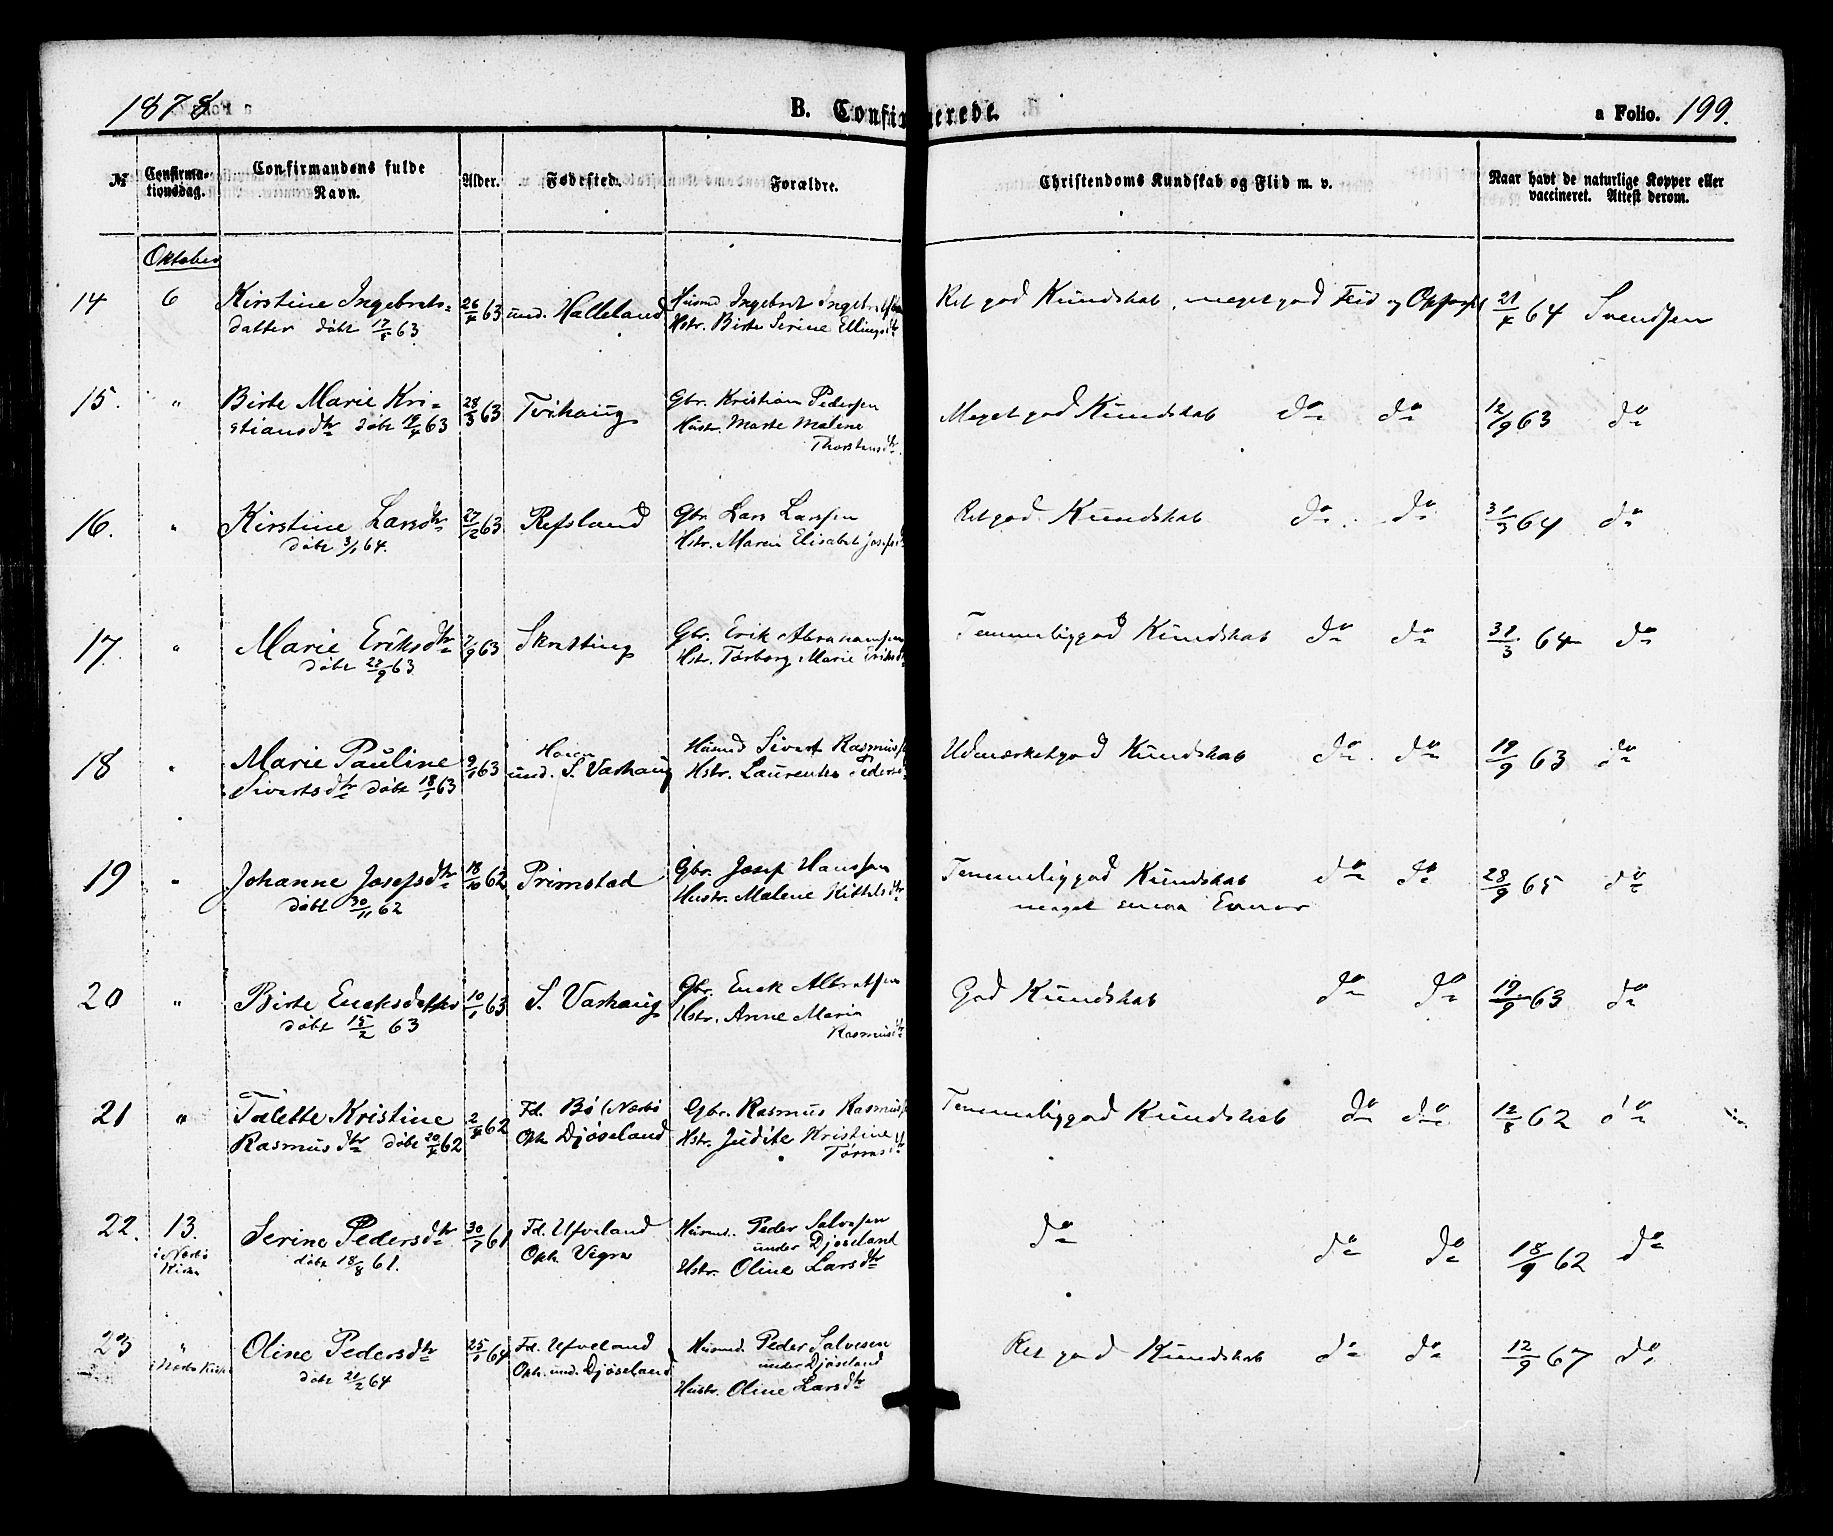 1878 B. Confirmerede. a Folio. 199.
№ Confirma- Confirmandens fulde Alder. Fødested. Forældre. Christendoms Kundskab og Flid m. v. Naar havt de naturlige Kopper eller
tionsdag. Navn. vaccineret. Attest derom.
Oktober
14 6 Kirstine Ingebrets- 26/4 63 und. Halleland Husmd Ingebret Ret god Kundskab, meget god Flid og 21/4 64 Svendsen
datter døbt 63 Hstr. Birte Serine Ellingsdtr
15. " Birte Marie Kri- 28/3 63 Tvihaug Gbr. Kristian Pedersen Meget god Kundskab do do 12/9 63 do
stiansdtr døbt 19/4 63 Hustr. Marte Malene
Thorstensdtr
16. " Kirstine Larsdtr 27/12 63 Refsland Gbr. Lars Larssen Ret god Kundskab do do 31/3 64 do
døbt 3/1 64. Hstr. Maren Elisabet
17. " Marie Eriksdtr 7/9 63 Skretting Gbr. Erik Abrahamsen Temmelig god Kundskab do do 31/3 64 do
døbt 63 Hstr. Torborg Marie
18 " Marie Pauline 9/1 63 und. S. Varhaug Husmd Sivert Udmærket god Kundskab do do 19/9 63 do
Sivertsdtr døbt 18/1 63 Hstr. Laurentse
19 " Johanne Josefsdtr 18/10 62 Primstad Gbr. Josef Hanssen Temmelig god Kundskab do do 28/9 65 do
døbt 30/11 62 Hustr. Malene Kittelsdtr meget Evner
20 " Birte 10/1 63 S. Varhaug Gbr. God Kundskab do do 19/9 63 do
døbt 15/2 63 Hstr. Anne Maria
Rasmusdtr
21 " Talette Kristine 2/4 62 Fd. Bø (Nærbø Gbr. Rasmus Temmelig god Kundskab do do 12/8 62 do
Rasmusdtr døbt 20/4 62 Oph. Djøseland Hstr. Judite Kristine
22. 13. Serine Pedersdtr 30/7 61 Fd. Ufveland Husmd. Peder Salvesen do do do 18/9 62 do
i Nærbø døbt 18/8 61. Oph. under Djøseland
Kirke Hstr. Oline Larsdtr
23 " Oline Pedersdtr 25/1 64 Fd. Ufveland Husmd. Peder Salvesen Ret god Kundskab do do 12/9 67 do
i Nærbø Kirke døbt 21/2 64 Oph. und. Djøseland under Djøseland
Hustr. Oline Larsdtr